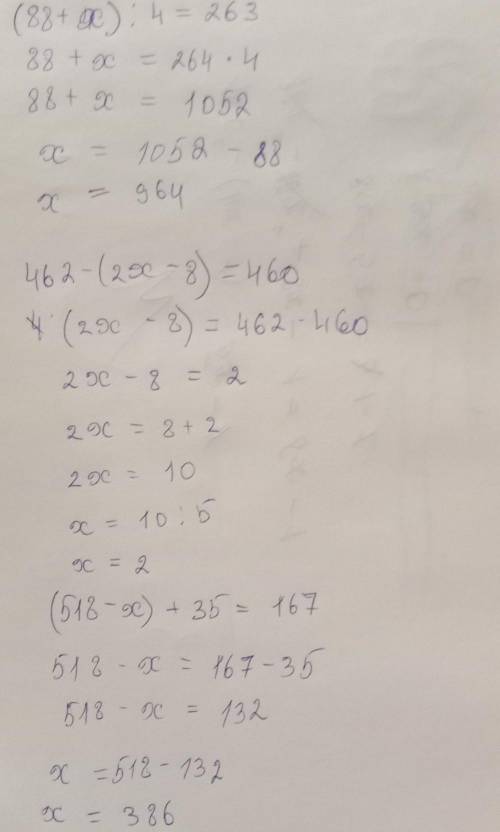 (88 + x) : 4 = 263
88 + x = 264 · 4
88 + x = 1052
x = 1052 - 88
x = 964
462 - (2x - 8) = 460
(2x - 8) = 462 - 460
2x - 8 = 2
2x = 8 + 2
2x = 10
x = 10 : 5
x = 2
(518 - x) + 35 = 167
518 - x = 167 - 35
518 - x = 132
x = 518 - 132
x = 386